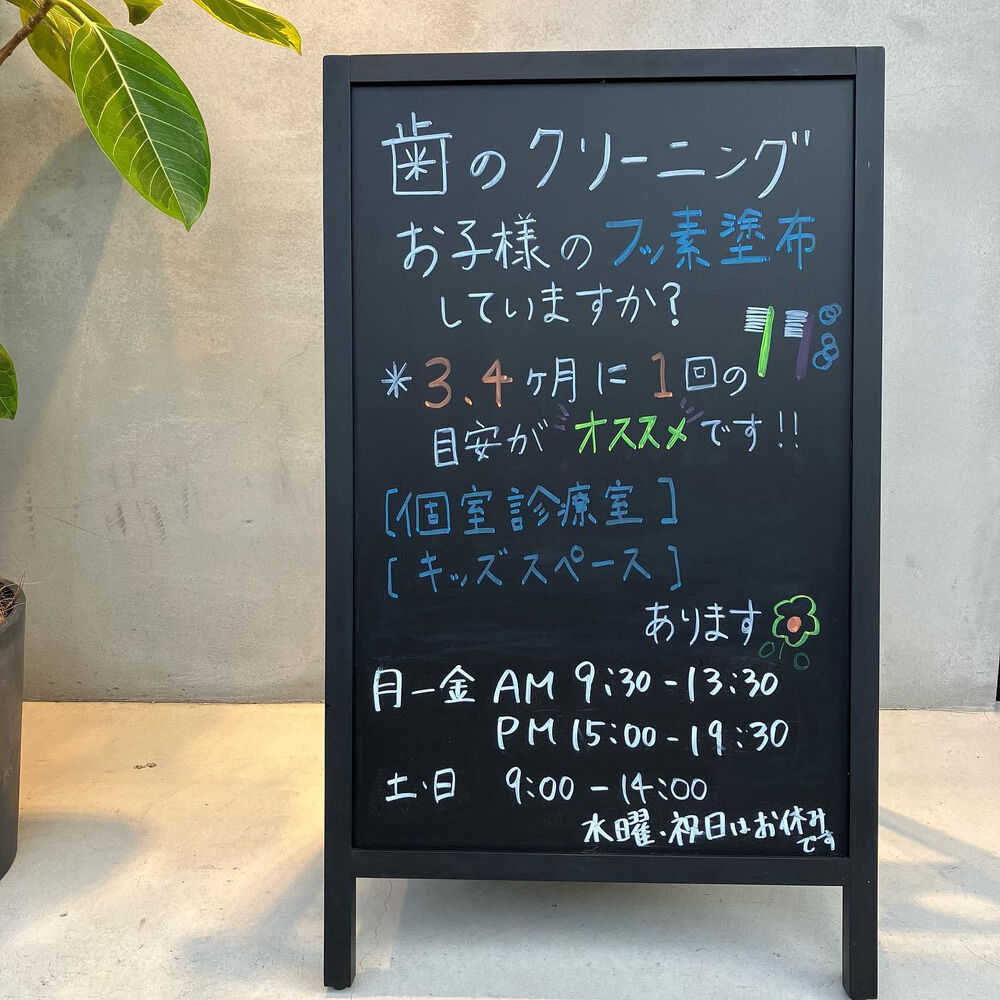 歯のクリーニング
お子様のフッ素塗布
していますか?
*3.4ヶ月に1回の
目安がオススメです!!
[個室診療室]
[キッズスペース]
あります
月ー金 AM 9:30-13:30
PM 15:00-19:30
土・日 9:00-14:00
水曜・祝日はお休み
です